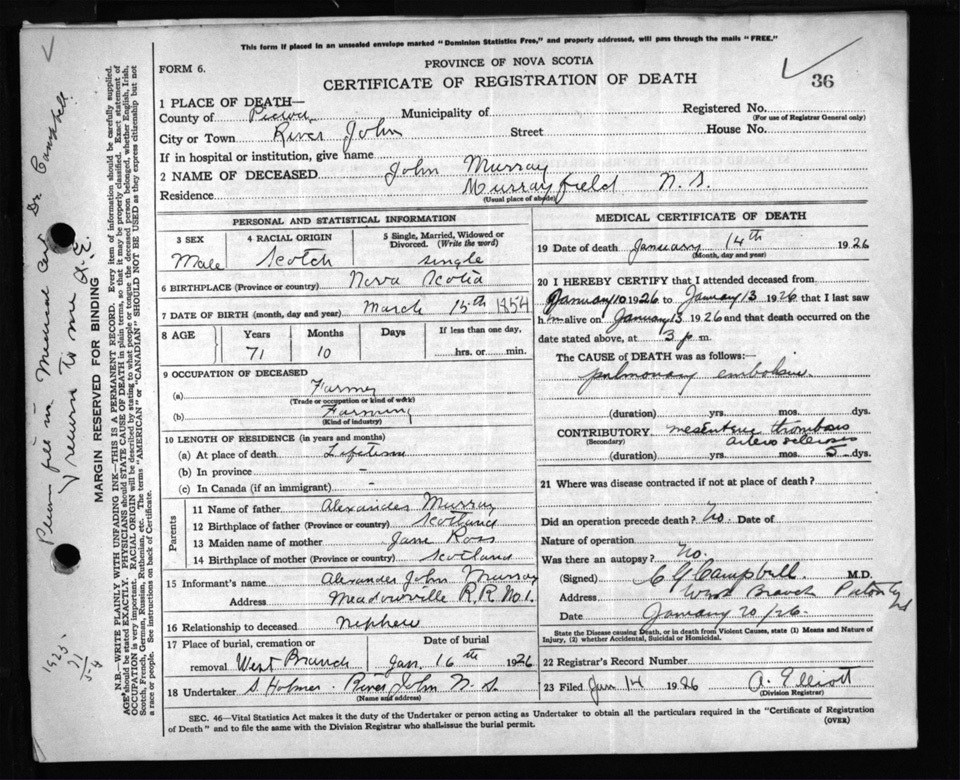 This form if placed in an unsealed envelope marked "Dominion Statistics Free," and properly addressed, will pass through the mails "FREE."
FORM 6.
PROVINCE OF NOVA SCOTIA
CERTIFICATE OF REGISTRATION OF DEATH
36
1 PLACE OF DEATH—
County of Pictou Municipality of Registered No.
(For use of Registrar General only)
City or Town River John Street House No.
If in hospital or institution, give name
2 NAME OF DECEASED John Murray
Residence Murrayfield N. S.
(Usual place of abode)
PERSONAL AND STATISTICAL INFORMATION
3 SEX 4 RACIAL ORIGIN 5 Single, Married, Widowed or Divorced. (Write the word)
Male Scotch single
6 BIRTHPLACE (Province or country) Nova Scotia
7 DATE OF BIRTH (month, day, and year) March 15th 1854
8 AGE Years Months Days If less than one day,
71 10 hrs. or min.
9 OCCUPATION OF DECEASED
(a) Farmer
(Trade or occupation or kind of work)
(b) Farming
(Kind of industry)
10 LENGTH OF RESIDENCE (in years and months)
(a) At place of death Lifetime
(b) In province -
(c) In Canada (if an immigrant) -
Parents
11 Name of father Alexander Murray
12 Birthplace of father (Province or country) Scotland
13 Maiden name of mother Jane Ross
14 Birthplace of mother (Province or country) Scotland
15 Informant's name Alexander John Murray
Address Meadowville R. R. No 1.
16 Relationship to deceased nephew
17 Place of burial, cremation or Date of burial
removal West Branch Jan. 16th 1926
18 Undertaker S. Holmes River John N. S.
(Name and address)
MEDICAL CERTIFICATE OF DEATH
19 Date of death January 14th 1926
(Month, day and year)
20 I HEREBY CERTIFY that I attended deceased from
January 10 1926 to January 13 1926 that I last saw
him alive on January 13 1926 and that death occurred on the
date stated above, at 3 p. m.
The CAUSE of DEATH was as follows:—
pulmonary embolism
(duration) yrs. mos. dys.
CONTRIBUTORY mesenteric thrombosis
(Secondary) arterio sclerosis
(duration) yrs. mos. 5 dys.
21 Where was disease contracted if not at place of death?
Did an operation precede death? No. Date of
Nature of operation
Was there an autopsy? No.
(Signed) C G Campbell. M.D.
Address West Branch Pictou Co
Date January 20/26
State the Disease causing Death, or in death from Violent Causes, state (1) Means and Nature of
Injury, (2) whether Accidental, Suicidal or Homicidal.
22 Registrar's Record Number
23 Filed Jan 14 1926 A. Elliott
(Division Registrar)
SEC. 46—Vital Statistics Act makes it the duty of the Undertaker or person acting as Undertaker to obtain all the particulars required in the "Certificate of Registration
of Death" and to file the same with the Division Registrar who shall issue the burial permit.
(OVER)
MARGIN RESERVED FOR BINDING
N.B.—WRITE PLAINLY WITH UNFADING INK—THIS IS A PERMANENT RECORD. Every item of information should be carefully supplied.
AGE should be stated EXACTLY. PHYSICIANS should STATE CAUSE OF DEATH in plain terms, so that it may be properly classified. Exact statement of
OCCUPATION is very important. RACIAL ORIGIN will be described by stating to what people or tongue the deceased person belonged, whether English, Irish,
Scotch, French, German, Russian, Ruthenian, etc. The terms "AMERICAN" or "CANADIAN" SHOULD NOT BE USED as they express citizenship but not
a race or people. See instructions on back of Certificate.
Please fill in Medical Cert Dr. Campbell
& return to me A.E.
1925
71
54